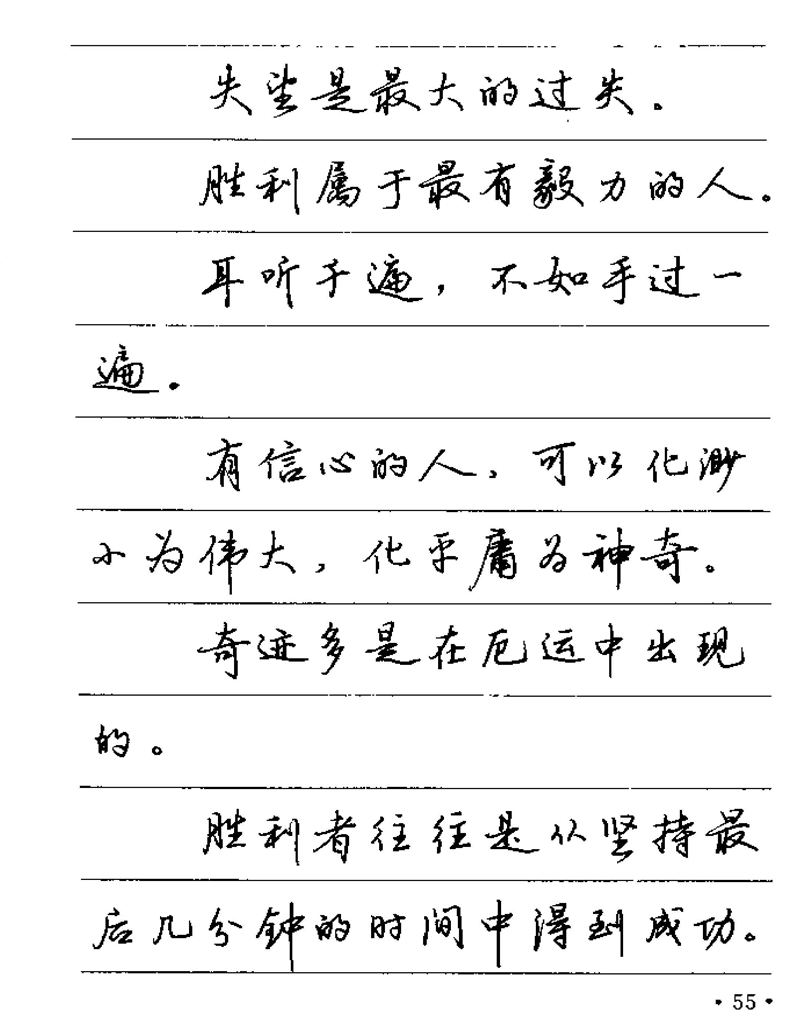 失望是最大的过失。
胜利属于最有毅力的人。
耳听千遍，不如手过一
遍。
有信心的人，可以化渺
小为伟大，化平庸为神奇。
奇迹多是在厄运中出现
的。
胜利者往往是从坚持最
后几分钟的时间中得到成功。
·55·